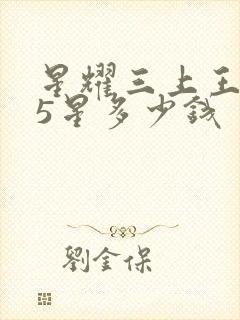 星耀三上王
5星多少钱
劉金保